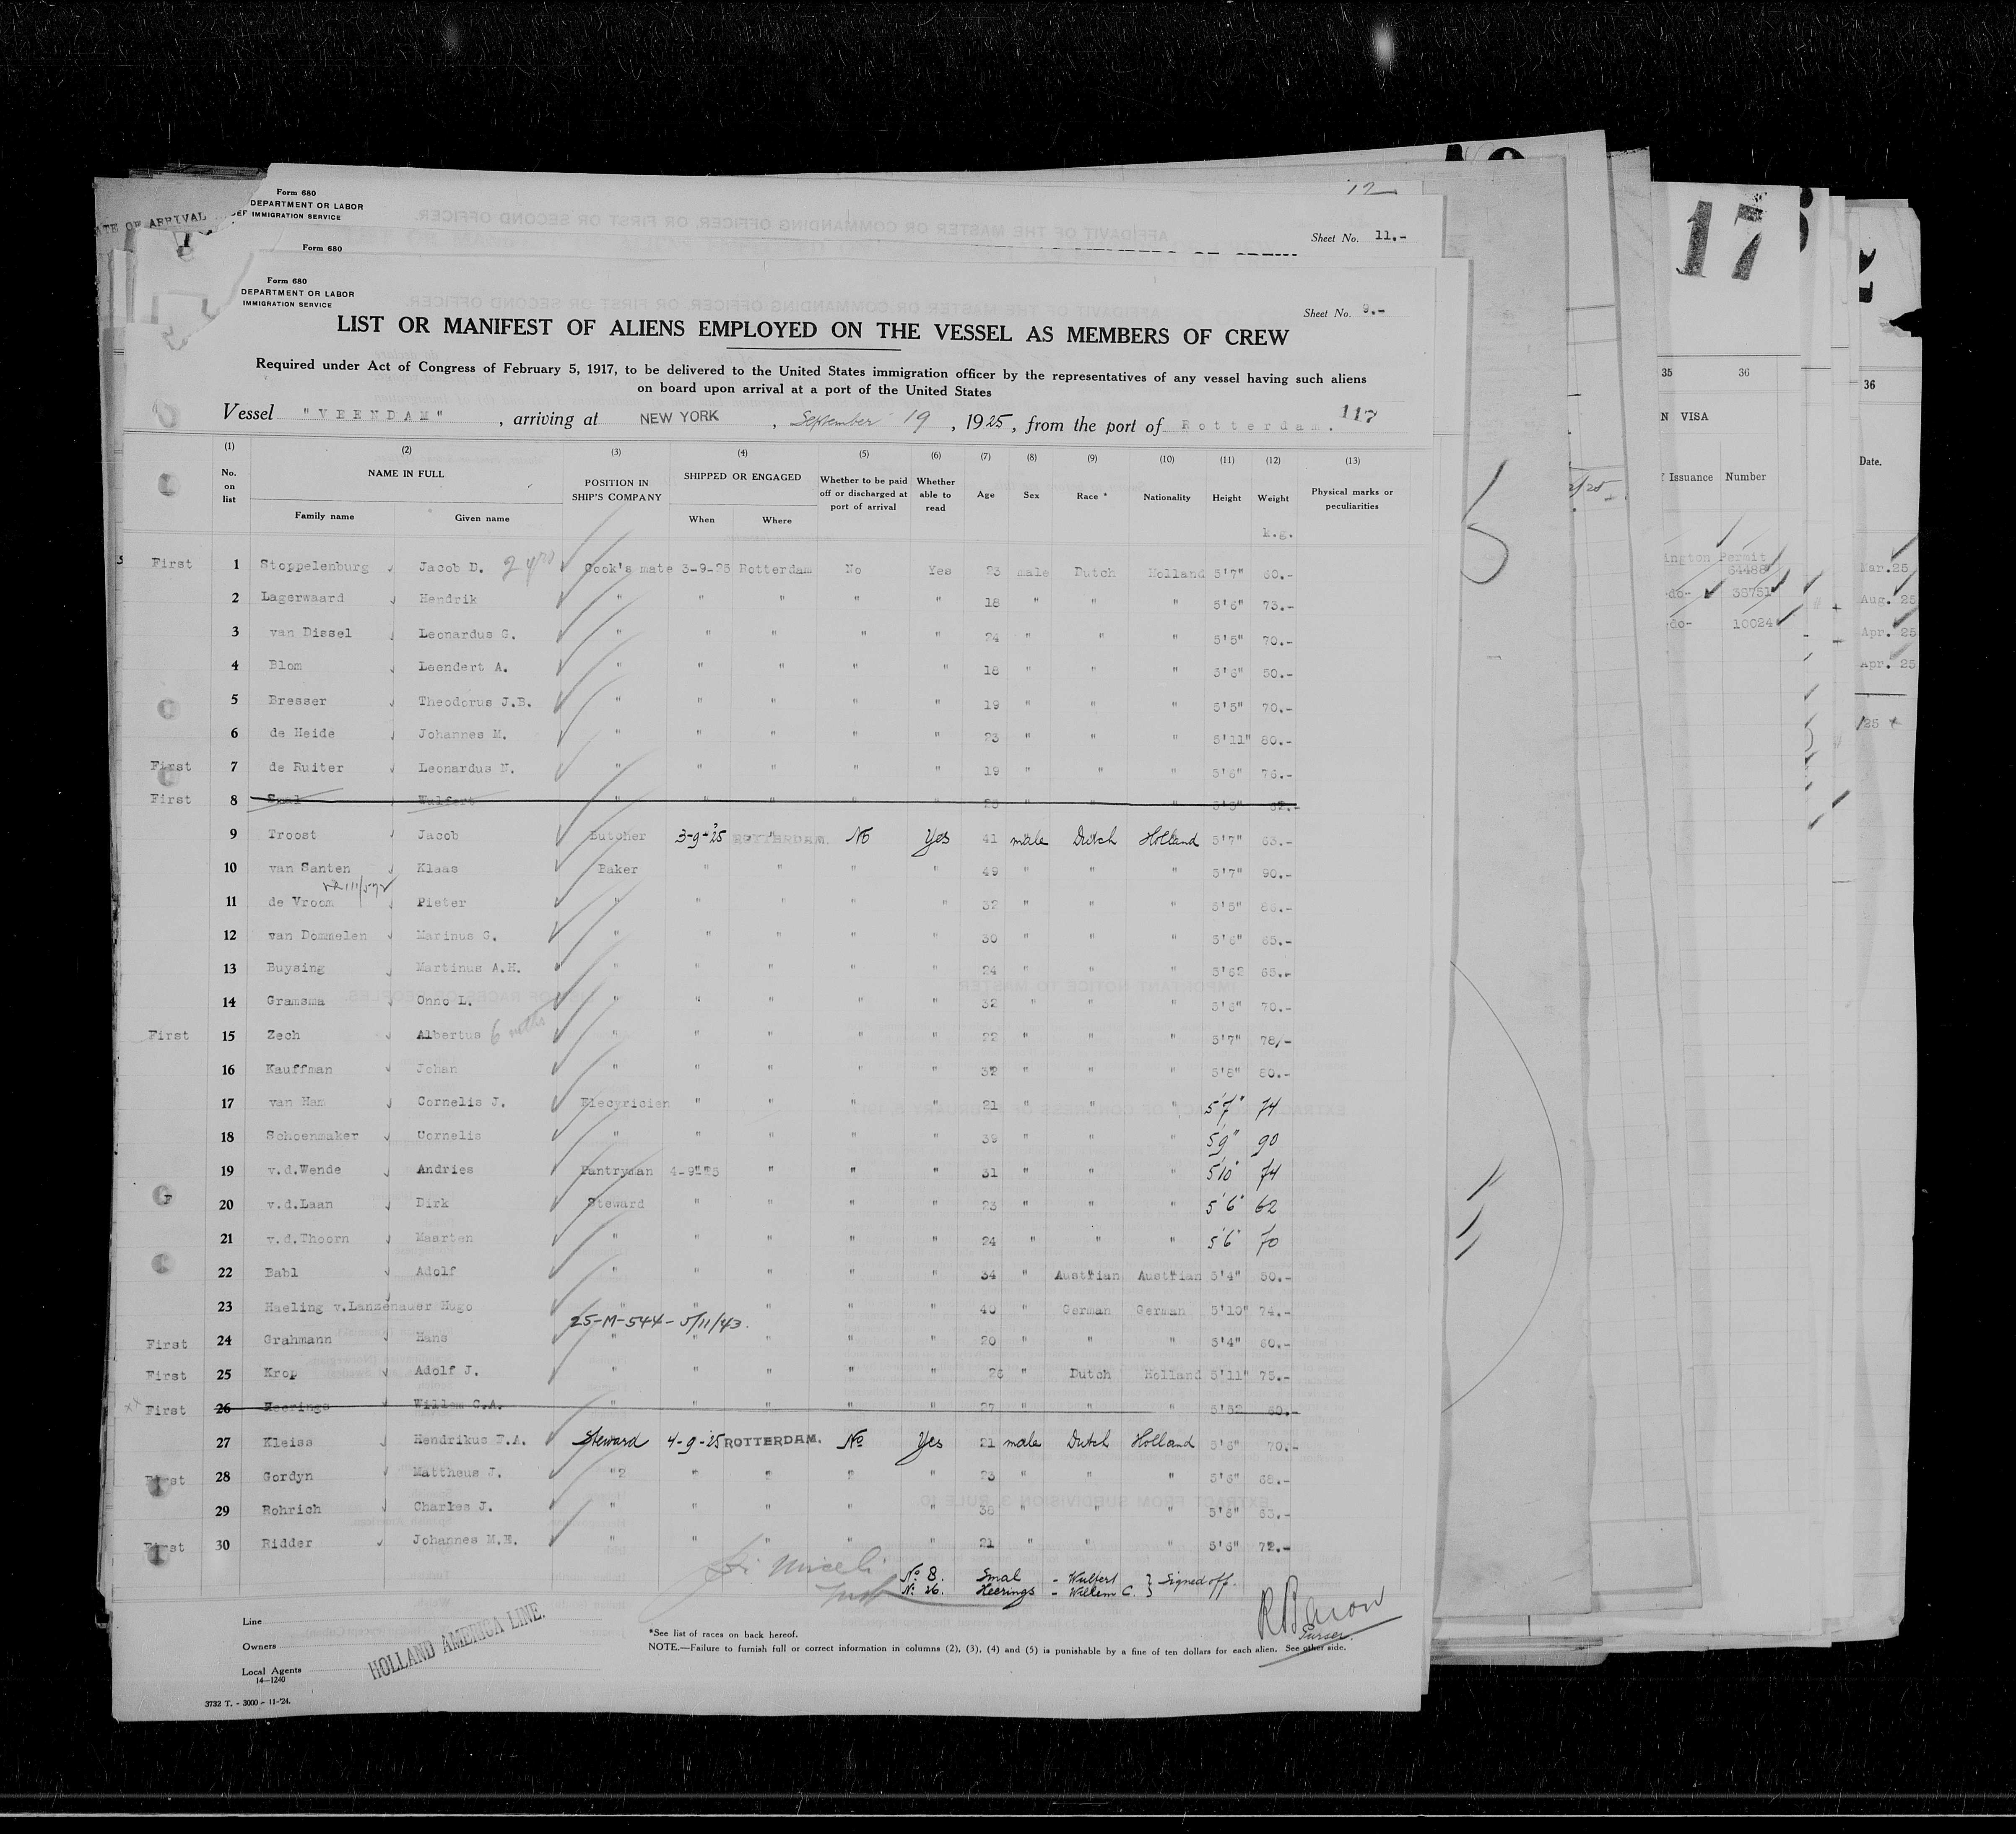 12
Form 680
DEPARTMENT OR LABOR
IMMIGRATION SERVICE
Sheet No. 11.-
Form 680
17
Form 680
DEPARTMENT OR LABOR
IMMIGRATION SERVICE
Sheet No. 9.-
LIST OR MANIFEST OF ALIENS EMPLOYED ON THE VESSEL AS MEMBERS OF CREW
Required under Act of Congress of February 5, 1917, to be delivered to the United States immigration officer by the representatives of any vessel having such aliens
on board upon arrival at a port of the United States
Vessel "VEENDAM", arriving at NEW YORK, September 19, 1925, from the port of Rotterdam. 117
(1) (2) (3) (4) (5) (6) (7) (8) (9) (10) (11) (12) (13)
No. on list NAME IN FULL Family name Given name POSITION IN SHIP'S COMPANY SHIPPED OR ENGAGED When Where Whether to be paid off or discharged at port of arrival Whether able to read Age Sex Race * Nationality Height Weight Physical marks or peculiarities
k.g.
First 1 Stoppelenburg Jacob D. Cook's mate 3-9-25 Rotterdam No Yes 23 male Dutch Holland 5'7" 60.-
2 Lagerwaard Hendrik " " " " " 18 " " " 5'6" 73.-
3 van Dissel Leonardus G. " " " " " 24 " " " 5'5" 70.-
4 Blom Leendert A. " " " " " 18 " " " 5'6" 50.-
5 Bresser Theodorus J.B. " " " " " 19 " " " 5'5" 70.-
6 de Heide Johannes M. " " " " " 23 " " " 5'11" 80.-
First 7 de Ruiter Leonardus N. " " " " " 19 " " " 5'6" 76.-
First 8 Smal Wulfert " " " " " " " "
9 Troost Jacob Butcher 3-9-'25 ROTTERDAM. No Yes 41 male Dutch Holland 5'7" 63.-
10 van Santen Klaas Baker " " " " 49 " " " 5'7" 90.-
11 de Vroom Pieter " " " " " 32 " " " 5'5"
12 van Dommelen Marinus G. " " " " " 30 " " " 5'6" 65.-
13 Buysing Martinus A.H. " " " " " 24 " " " 5'62 65.-
14 Gramsma Onno L. " " " " " 32 " " " 5'6" 70.-
First 15 Zech Albertus 6 mths " " " " " 22 " " " 5'7" 78/-
16 Kauffman Johan " " " " " 32 " " " 5'8" 80.-
17 van Ham Cornelis J. Elecyricien " " " " 21 " " " 5'7" 74
18 Schoenmaker Cornelis " " " " " 39 " " " 5'9" 90
19 v.d.Wende Andries Pantryman 4-9-25 " " " 31 " " " 5'10" 74
20 v.d.Laan Dirk Steward " " " " 23 " " " 5'6" 62
21 v.d.Thoorn Maarten " " " " " 24 " " " 5'6" 70
22 Babl Adolf " " " " " 34 " Austrian Austrian 5'4" 50.-
23 Haeling v.Lanzenauer Hugo " " " " " 40 " German German 5'10" 74.-
25-M-544-5/11/43.
First 24 Grahmann Hans " " " " " 20 " " " 5'4" 60.-
First 25 Krop Adolf J. " " " " " 26 " Dutch Holland 5'11" 75.-
First 26 Heerings Willem C.A. " " " " " 27 " " " 5'52 60.-
27 Kleiss Hendrikus F.A. Steward 4-9-'25 ROTTERDAM. No Yes 21 male Dutch Holland 5'6" 70.-
First 28 Gordyn Mattheus J. " " " " " 23 " " " 5'6" 68.-
29 Rohrich Charles J. " " " " " 38 " " " 5'8" 63.-
First 30 Ridder Johannes M.E. " " " " " 21 " " " 5'6" 72.-
No 8. Smal - Wulfert } Signed off.
No. 26. Heerings - Willem C. }
Purser.
Line
Owners
Local Agents
14—1240
HOLLAND AMERICA LINE.
*See list of races on back hereof.
NOTE.—Failure to furnish full or correct information in columns (2), (3), (4) and (5) is punishable by a fine of ten dollars for each alien. See other side.
3732 T. - 3000 - 11-'24.
35 36
N VISA
Issuance Number
ington Permit
64488
-do- 36751
-do- 10024
36
Date.
Mar.25
Aug. 25
Apr. 25
Apr. 25